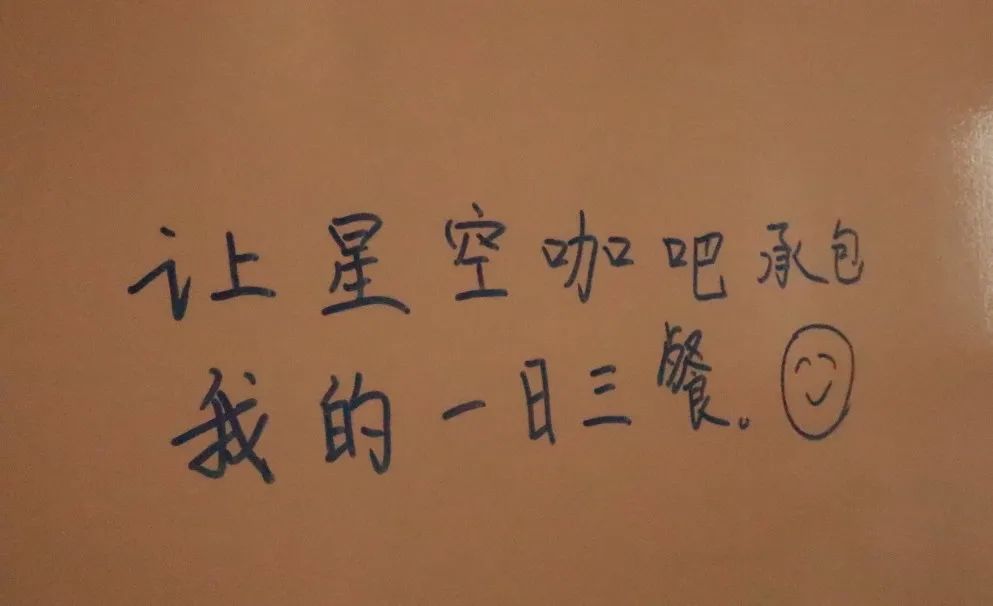 让星空咖吧承包
我的一日三餐。